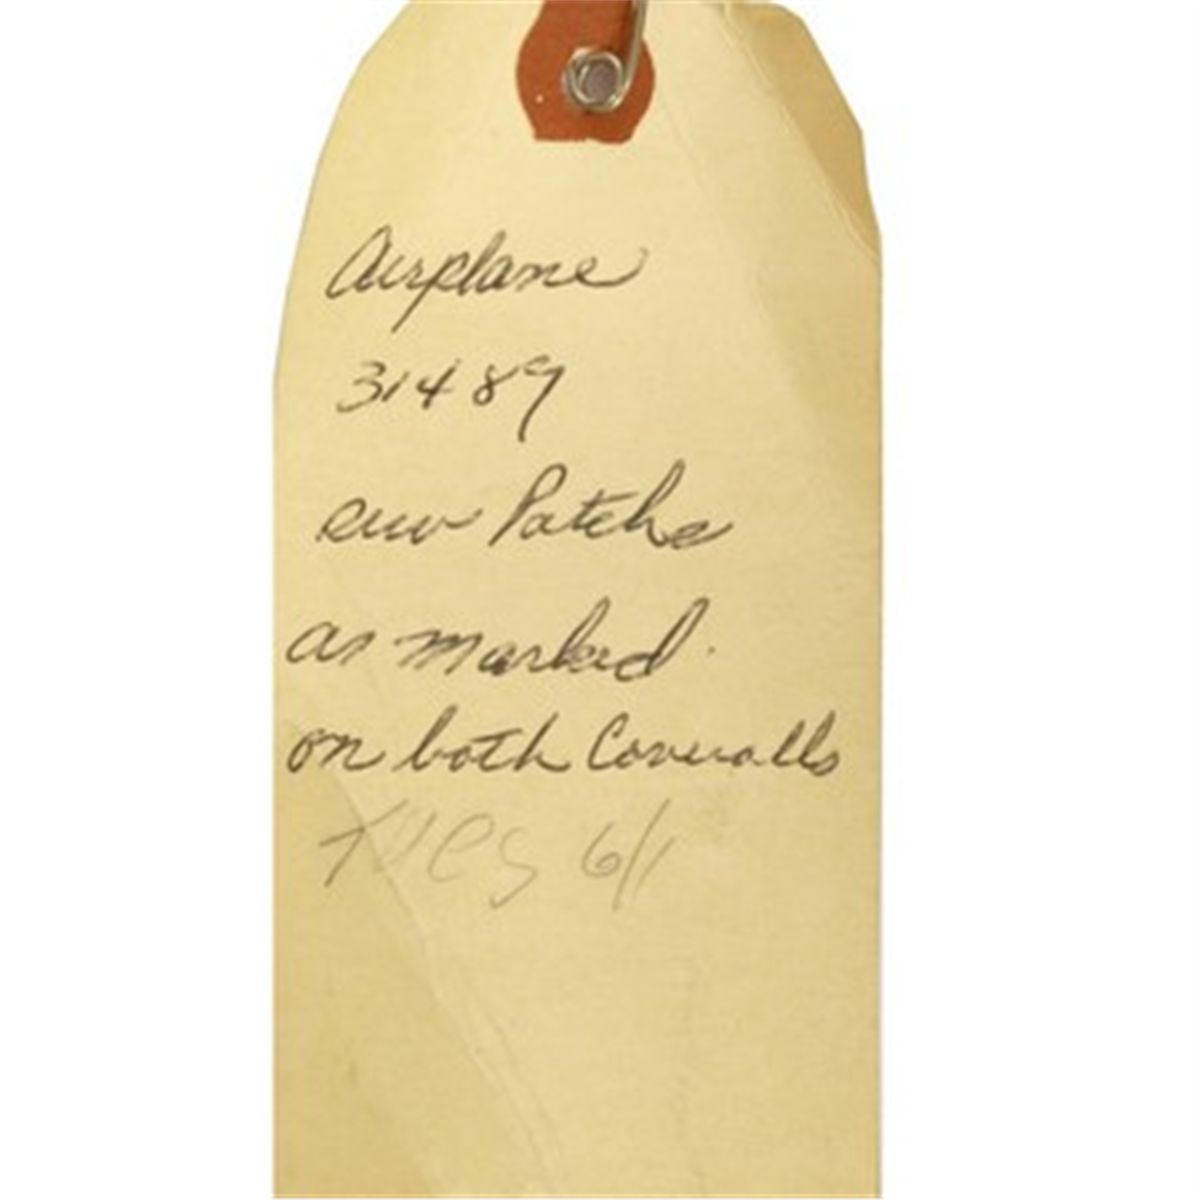 Airplane
31489
sew Patche
as marked.
on both Coveralls
Tues 6/1